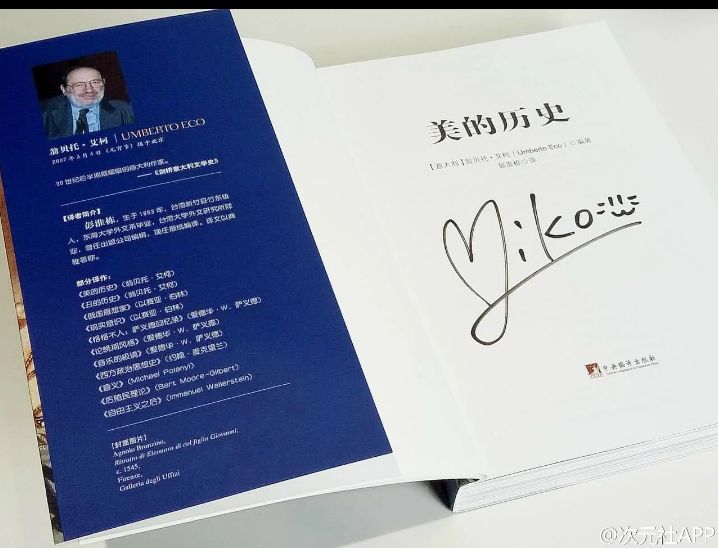 翁贝托·艾柯 | UMBERTO ECO
2007年3月4日(元宵节)摄于北京
20世纪后半期最耀眼的意大利作家。
——《剑桥意大利文学史》
【译者简介】
彭淮栋,生于1953年,台湾新竹县竹东镇
人,东海大学外文系毕业,台湾大学外文研究所肄
业,曾任出版公司编辑,现任报纸编译。译文以典
雅著称。
部分译作:
《美的历史》(翁贝托·艾柯)
《丑的历史》(翁贝托·艾柯)
《俄国思想家》(以赛亚·伯林)
《现实意识》(以赛亚·伯林)
《格格不入:萨义德回忆录》(爱德华·W.萨义德)
《论晚期风格》(爱德华·W.萨义德)
《音乐的极境》(爱德华·W.萨义德)
《西方政治思想史》(约翰·麦克里兰)
《意义》(Michael Polanyi)
《后殖民理论》(Bart Moore-Gilbert)
《自由主义之后》(Immanuel Wallerstein)
[封面图片]
Agnolo Bronzino,
Ritratto di Eleonora di col figlio Giovanni,
c. 1545,
Firenze,
Galleria degli Uffizi
美的历史
【意大利】翁贝托·艾柯(Umberto Eco) 编著
彭淮栋 译
Miko
中央编译出版社
Central Compilation & Translation Press
@次元社APP